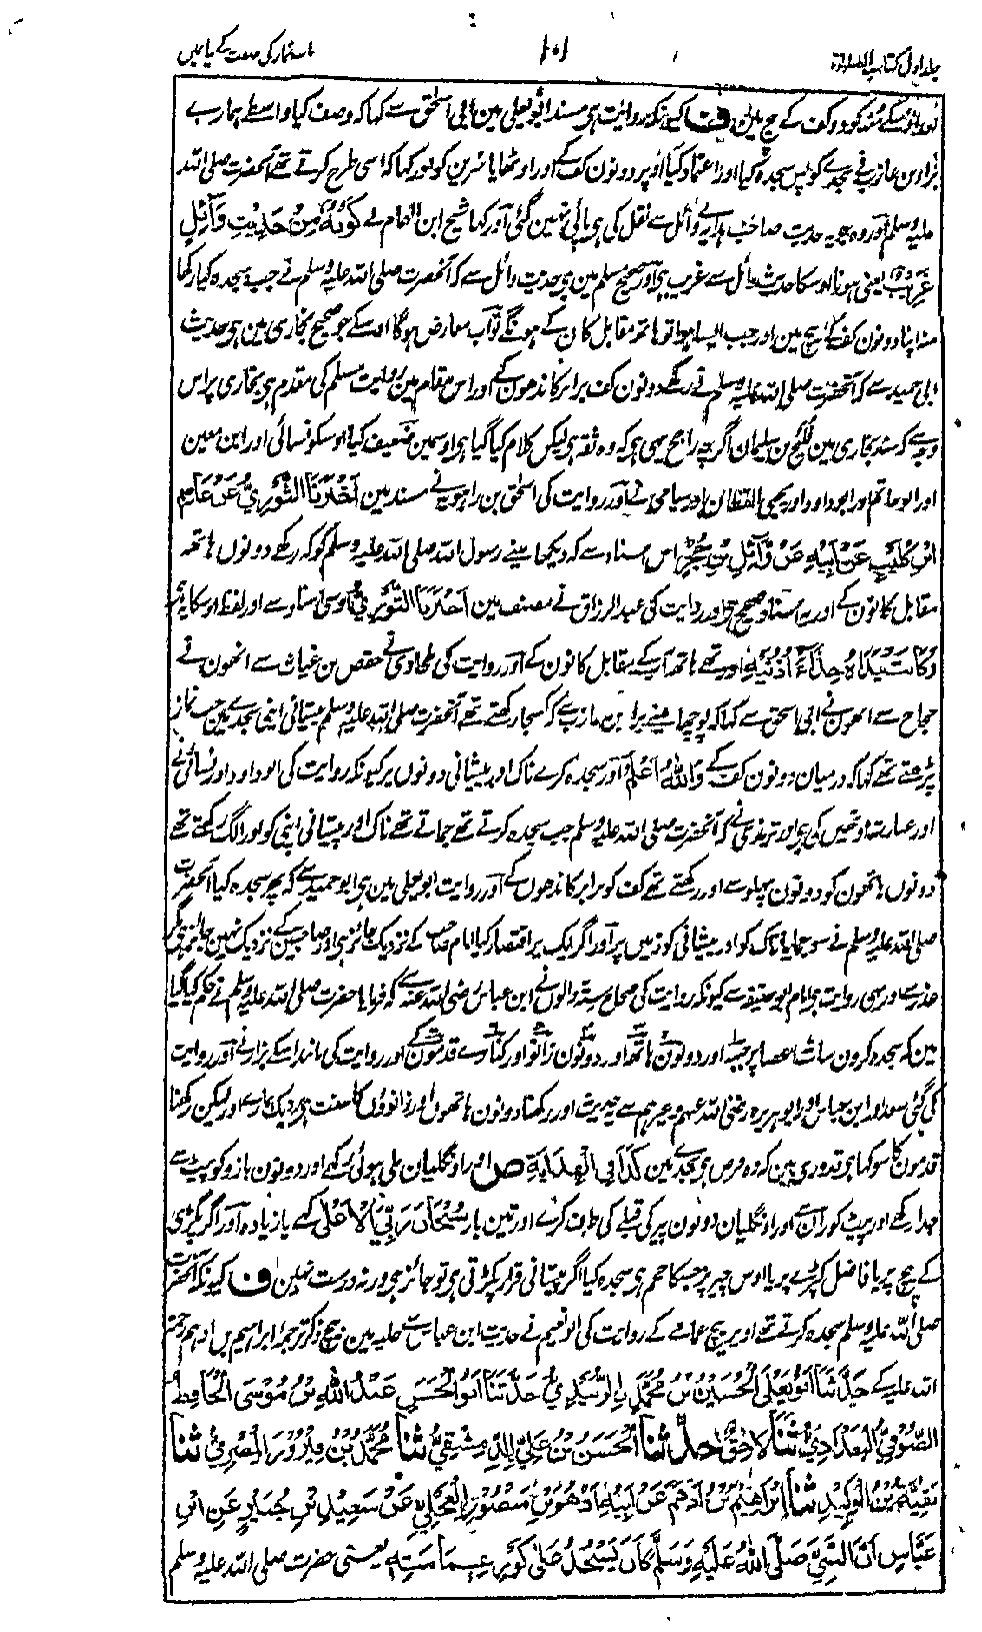 جلد اول کتاب الصلوٰۃ
۱۰۱
نماز کی صفت کے باب میں
اور رکھے منہ کو دو کف کے بیچ میں ف کیونکہ روایت ہی مسند ابو یعلی مین ابی اسحٰق سے کہا کہ وصف کیا واسطے ہمارے
براء بن عازب نے سجدے کو پس سجدہ کیا اور اعتماد کیا اوپر دونون کف کے اور اوٹھایا سرین کو اور کہا کہ اسی طرح کرتے تھے آنحضرت صلی اللہ
علیہ وسلم اور وہ جو یہ حدیث صاحب ہدایہ نے وائل سے نقل کی ہی پائی نہین گئی اور کہا شیخ ابن الہمام نے کَوْنُهُ مِنْ حَدِيْثِ وَآئِلٍ
غَرِيْبٌ یعنی ہونا اوسکا حدیث وائل سے غریب ہی اور صحیح مسلم مین ہی حدیث وائل سے کہ آنحضرت صلی اللہ علیہ وسلم نے جب سجدہ کیا رکھا
منہ اپنا دونون کف کے بیچ مین اور جب ایسا ہوا تو ہاتھ مقابل کان کے ہونگے تو اب معارض ہوگا اوسکے جو صحیح بخاری مین ہی حدیث
ابی حمید سے کہ آنحضرت صلی اللہ علیہ وسلم نے رکھے دونون کف برابر کاندھوں کے اور اس مقام مین روایت مسلم کی مقدم ہی بخاری پر اس
وجہ سے کہ سند بخاری مین فلیح بن سلیمان اگرچہ راجح یہی ہی کہ وہ ثقہ ہی لیکن کلام کیا گیا ہی اوسمین ضعیف کیا اوسکو نسائی اور ابن معین
اور ابو حاتم اور ابو داود اور یحیی القطان اور ساجی نے اور روایت کی اسحٰق بن راہویہ نے مسند مین اَخْبَرَنَا الثَّوْرِيُّ عَنْ عَاصِمِ
ابْنِ كُلَيْبٍ عَنْ اَبِيْهِ عَنْ وَآئِلِ بْنِ حُجْرٍ اس اسناد سے کہ دیکھا مینے رسول اللہ صلی اللہ علیہ وسلم کو کہ رکھے دونوں ہاتھ
مقابل کانون کے اور یہ اسناد صحیح ہی اور روایت کی عبد الرزاق نے مصنف مین اَخْبَرَنَا الثَّوْرِيُّ اوسی اسناد سے اور لفظ اوسکا یہ ہی
وَكَانَتْ يَدَاهُ حِذَآءَ اُذُنَيْهِ اور تھے ہاتھ آپکے مقابل کانون کے اور روایت کی طحاوی نے حفص بن غیاث سے انھون نے
حجاج سے انھون نے ابی اسحق سے کہا کہ پوچھا مینے براء بن عازب سے کہ کسجا رکھتے تھے آنحضرت صلی اللہ علیہ وسلم پیشانی اپنی سجدے مین جب نماز
پڑھتے تھے کہا کہ درمیان دونون کف کے وَاللّٰهُ اَعْلَمُ اور سجدہ کرے ناک اور پیشانی دونوں پر کیونکہ روایت کی ابو داود اور نسائی نے
اور عبارت اونھیں کی ہی اور ترمذی نے کہ آنحضرت صلی اللہ علیہ وسلم جب سجدہ کرتے تھے جماتے تھے ناک اور پیشانی اپنی کو اور الگ رکھتے تھے
دونوں ہاتھون کو دونون پہلو سے اور رکھتے تھے کف کو برابر کاندھوں کے اور روایت ابو یعلی مین ہی ابو حمید سے کہ پھر سجدہ کیا آنحضرت
صلی اللہ علیہ وسلم نے سو جمایا ناک کو اور پیشانی کو زمین پر اور اگر ایک پر اقتصار کیا امام صاحب کے نزدیک جائز ہی اور صاحبین کے نزدیک نہین جائز ہی مگر
عذر سے اور یہی روایت ہی امام ابو حنیفہ سے کیونکہ روایت کی صحاح ستہ والوں نے ابن عباس رضی اللہ عنہ سے کہ فرمایا حضرت صلی اللہ علیہ وسلم نے حکم کیا گیا
مین کہ سجدہ کرون سات اعضا پر جبہہ اور دونوں ہاتھ اور دونون زانو اور کنارے قدمون کے اور روایت کی مانند اسکے بزار نے اور روایت
کی گئی سعد اور ابن عباس اور ابو ہریرہ رضی اللہ عنہم وغیرہم سے یہ حدیث اور رکھنا دونون ہاتھوں اور زانوؤں کا سنت ہی نزدیک ہمارے اور لیکن رکھنا
قدمون کا سو کہا ہی قدوری مین کہ وہ فرض ہی سجدے مین كَذَا فِي الْهِدَايَةِ ص اور اونگلیان ملی ہوئی رکھے اور دونون بازو کو پیٹ سے
جدا رکھے اور پیٹ کو ران سے اور اونگلیان دونون پیر کی قبلے کی طرف کرے اور تین بار سُبْحَانَ رَبِّيَ الْاَعْلٰى کہے یا زیادہ اور اگر پگڑی
کے پیچ پر یا فاضل کپڑے پر یا اوس چیز پر جسکا حجم ہی سجدہ کیا اگر پیشانی قرار پکڑتی ہی تو جائز ہی ورنہ درست نہین ف کیونکہ آنحضرت
صلی اللہ علیہ وسلم سجدہ کرتے تھے اوپر پیچ عمامے کے روایت کی ابو نعیم نے حدیث ابن عباس سے حلیہ مین بیچ ذکر ترجمہ ابراہیم بن ادہم رحمۃ
اللہ علیہ کے حَدَّثَنَا اَبُوْ يَعْلَى الْحُسَيْنُ بْنُ مُحَمَّدٍ الزُّبَيْدِيُّ حَدَّثَنَا اَبُو الْحَسَنِ عَبْدُ اللّٰهِ بْنُ مُوْسَى الْحَافِظُ
الصُّوْفِيُّ الْبَغْدَادِيُّ ثَنَا لَاحِقٌ حَدَّثَنَا الْحَسَنُ بْنُ عَلِيٍّ الدِّمَشْقِيُّ ثَنَا مُحَمَّدُ بْنُ فِيْرُوْزَ الْمِصْرِيُّ ثَنَا
بَقِيَّةُ بْنُ الْوَلِيْدِ ثَنَا اِبْرَاهِيْمُ بْنُ اَدْهَمَ عَنْ اَبِيْهِ اَدْهَمَ بْنِ مَنْصُوْرٍ الْعِجْلِيِّ عَنْ سَعِيْدِ بْنِ جُبَيْرٍ عَنِ ابْنِ
عَبَّاسٍ اَنَّ النَّبِيَّ صَلَّى اللّٰهُ عَلَيْهِ وَسَلَّمَ كَانَ يَسْجُدُ عَلٰى كَوْرِ عِمَامَتِهٖ یعنی حضرت صلی اللہ علیہ وسلم